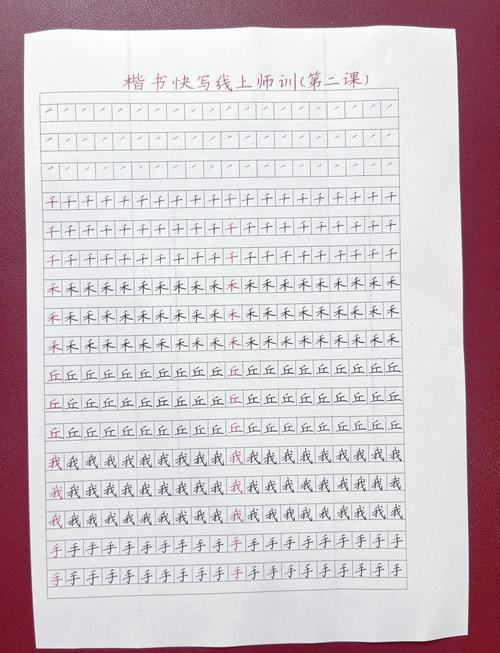 楷书快写线上师训(第二课)
㇒㇒㇒㇒㇒㇒㇒㇒㇒㇒㇒㇒㇒㇒㇒㇒㇒㇒㇒㇒
㇒㇒㇒㇒㇒㇒㇒㇒㇒㇒㇒㇒㇒㇒㇒㇒㇒㇒㇒㇒
㇒㇒㇒㇒㇒㇒㇒㇒㇒㇒㇒㇒㇒㇒㇒㇒㇒㇒㇒㇒
千千千千千千千千千千千千千千千千千千千千
千千千千千千千千千千千千千千千千千千千千
千千千千千千千千千千千千千千千千千千千千
禾禾禾禾禾禾禾禾禾禾禾禾禾禾禾禾禾禾禾禾
禾禾禾禾禾禾禾禾禾禾禾禾禾禾禾禾禾禾禾禾
禾禾禾禾禾禾禾禾禾禾禾禾禾禾禾禾禾禾禾禾
丘丘丘丘丘丘丘丘丘丘丘丘丘丘丘丘丘丘丘丘
丘丘丘丘丘丘丘丘丘丘丘丘丘丘丘丘丘丘丘丘
丘丘丘丘丘丘丘丘丘丘丘丘丘丘丘丘丘丘丘丘
我我我我我我我我我我我我我我我我我我我我
我我我我我我我我我我我我我我我我我我我我
我我我我我我我我我我我我我我我我我我我我
手手手手手手手手手手手手手手手手手手手手
手手手手手手手手手手手手手手手手手手手手